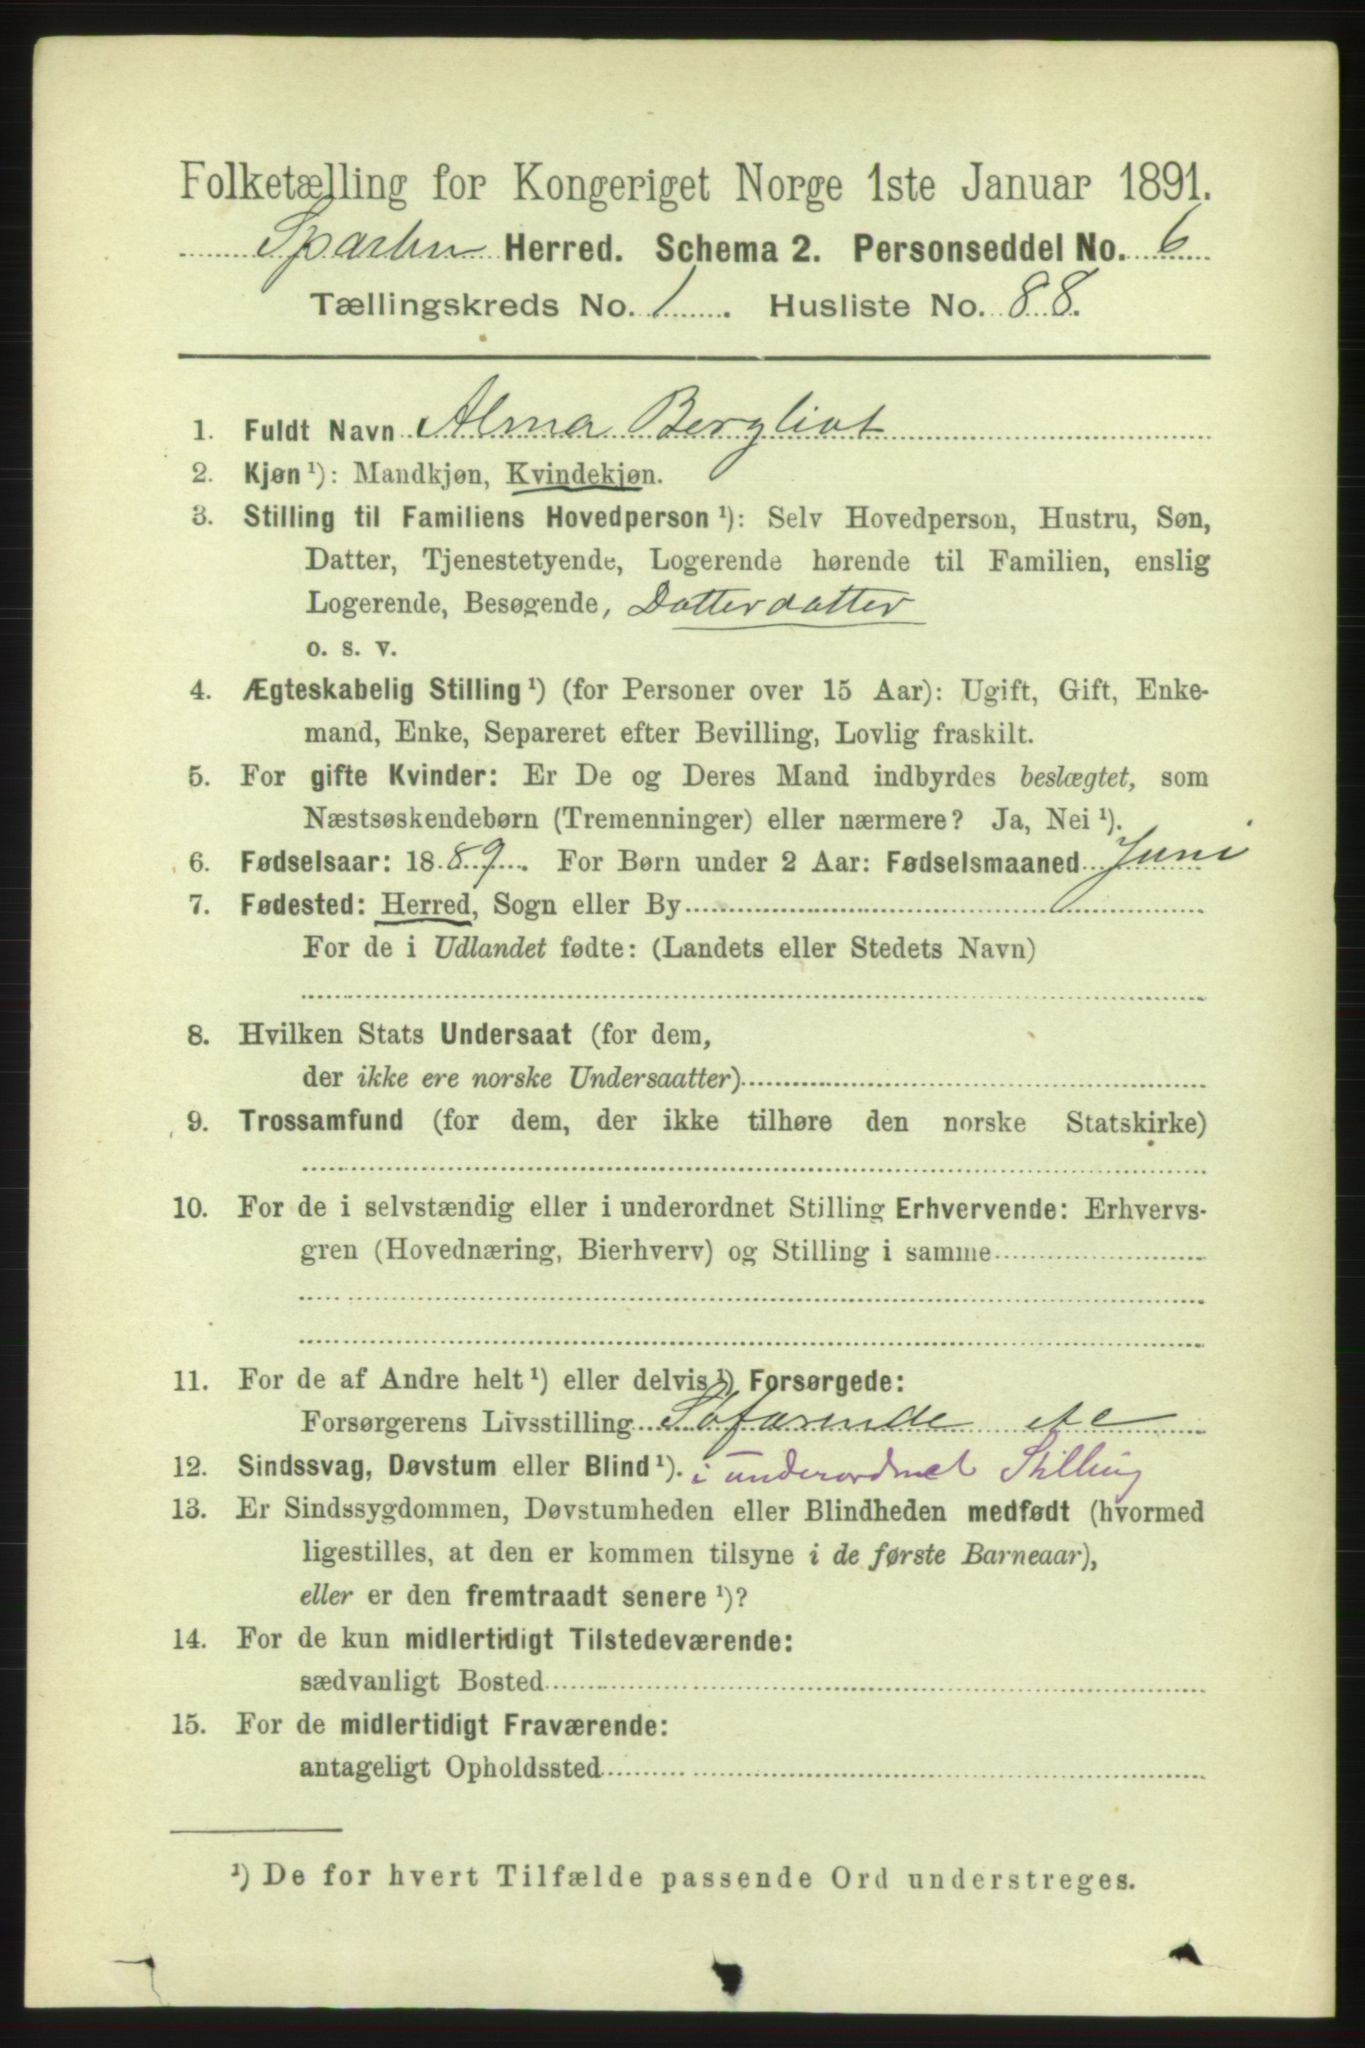 Folketælling for Kongeriget Norge 1ste Januar 1891.
Sparbu Herred. Schema 2. Personseddel No. 6
Tællingskreds No. 1. Husliste No. 88.
1. Fuldt Navn Alma Bergliot
2. Kjøn ¹): Mandkjøn, Kvindekjøn.
3. Stilling til Familiens Hovedperson ¹): Selv Hovedperson, Hustru, Søn,
Datter, Tjenestetyende, Logerende hørende til Familien, enslig
Logerende, Besøgende, Datterdatter
o. s. v.
4. Ægteskabelig Stilling ¹) (for Personer over 15 Aar): Ugift, Gift, Enke-
mand, Enke, Separeret efter Bevilling, Lovlig fraskilt.
5. For gifte Kvinder: Er De og Deres Mand indbyrdes beslægtet, som
Næstsøskendebørn (Tremenninger) eller nærmere? Ja, Nei ¹).
6. Fødselsaar: 1889. For Børn under 2 Aar: Fødselsmaaned Juni
7. Fødested: Herred, Sogn eller By
For de i Udlandet fødte: (Landets eller Stedets Navn)
8. Hvilken Stats Undersaat (for dem,
der ikke ere norske Undersaatter)
9. Trossamfund (for dem, der ikke tilhøre den norske Statskirke)
10. For de i selvstændig eller i underordnet Stilling Erhvervende: Erhvervs-
gren (Hovednæring, Bierhverv) og Stilling i samme
11. For de af Andre helt ¹) eller delvis ¹) Forsørgede:
Forsørgerens Livsstilling Søfarende
12. Sindssvag, Døvstum eller Blind ¹). i underordnet Stilling
13. Er Sindssygdommen, Døvstumheden eller Blindheden medfødt (hvormed
ligestilles, at den er kommen tilsyne i de første Barneaar),
eller er den fremtraadt senere ¹)?
14. For de kun midlertidigt Tilstedeværende:
sædvanligt Bosted
15. For de midlertidigt Fraværende:
antageligt Opholdssted
¹) De for hvert Tilfælde passende Ord understreges.